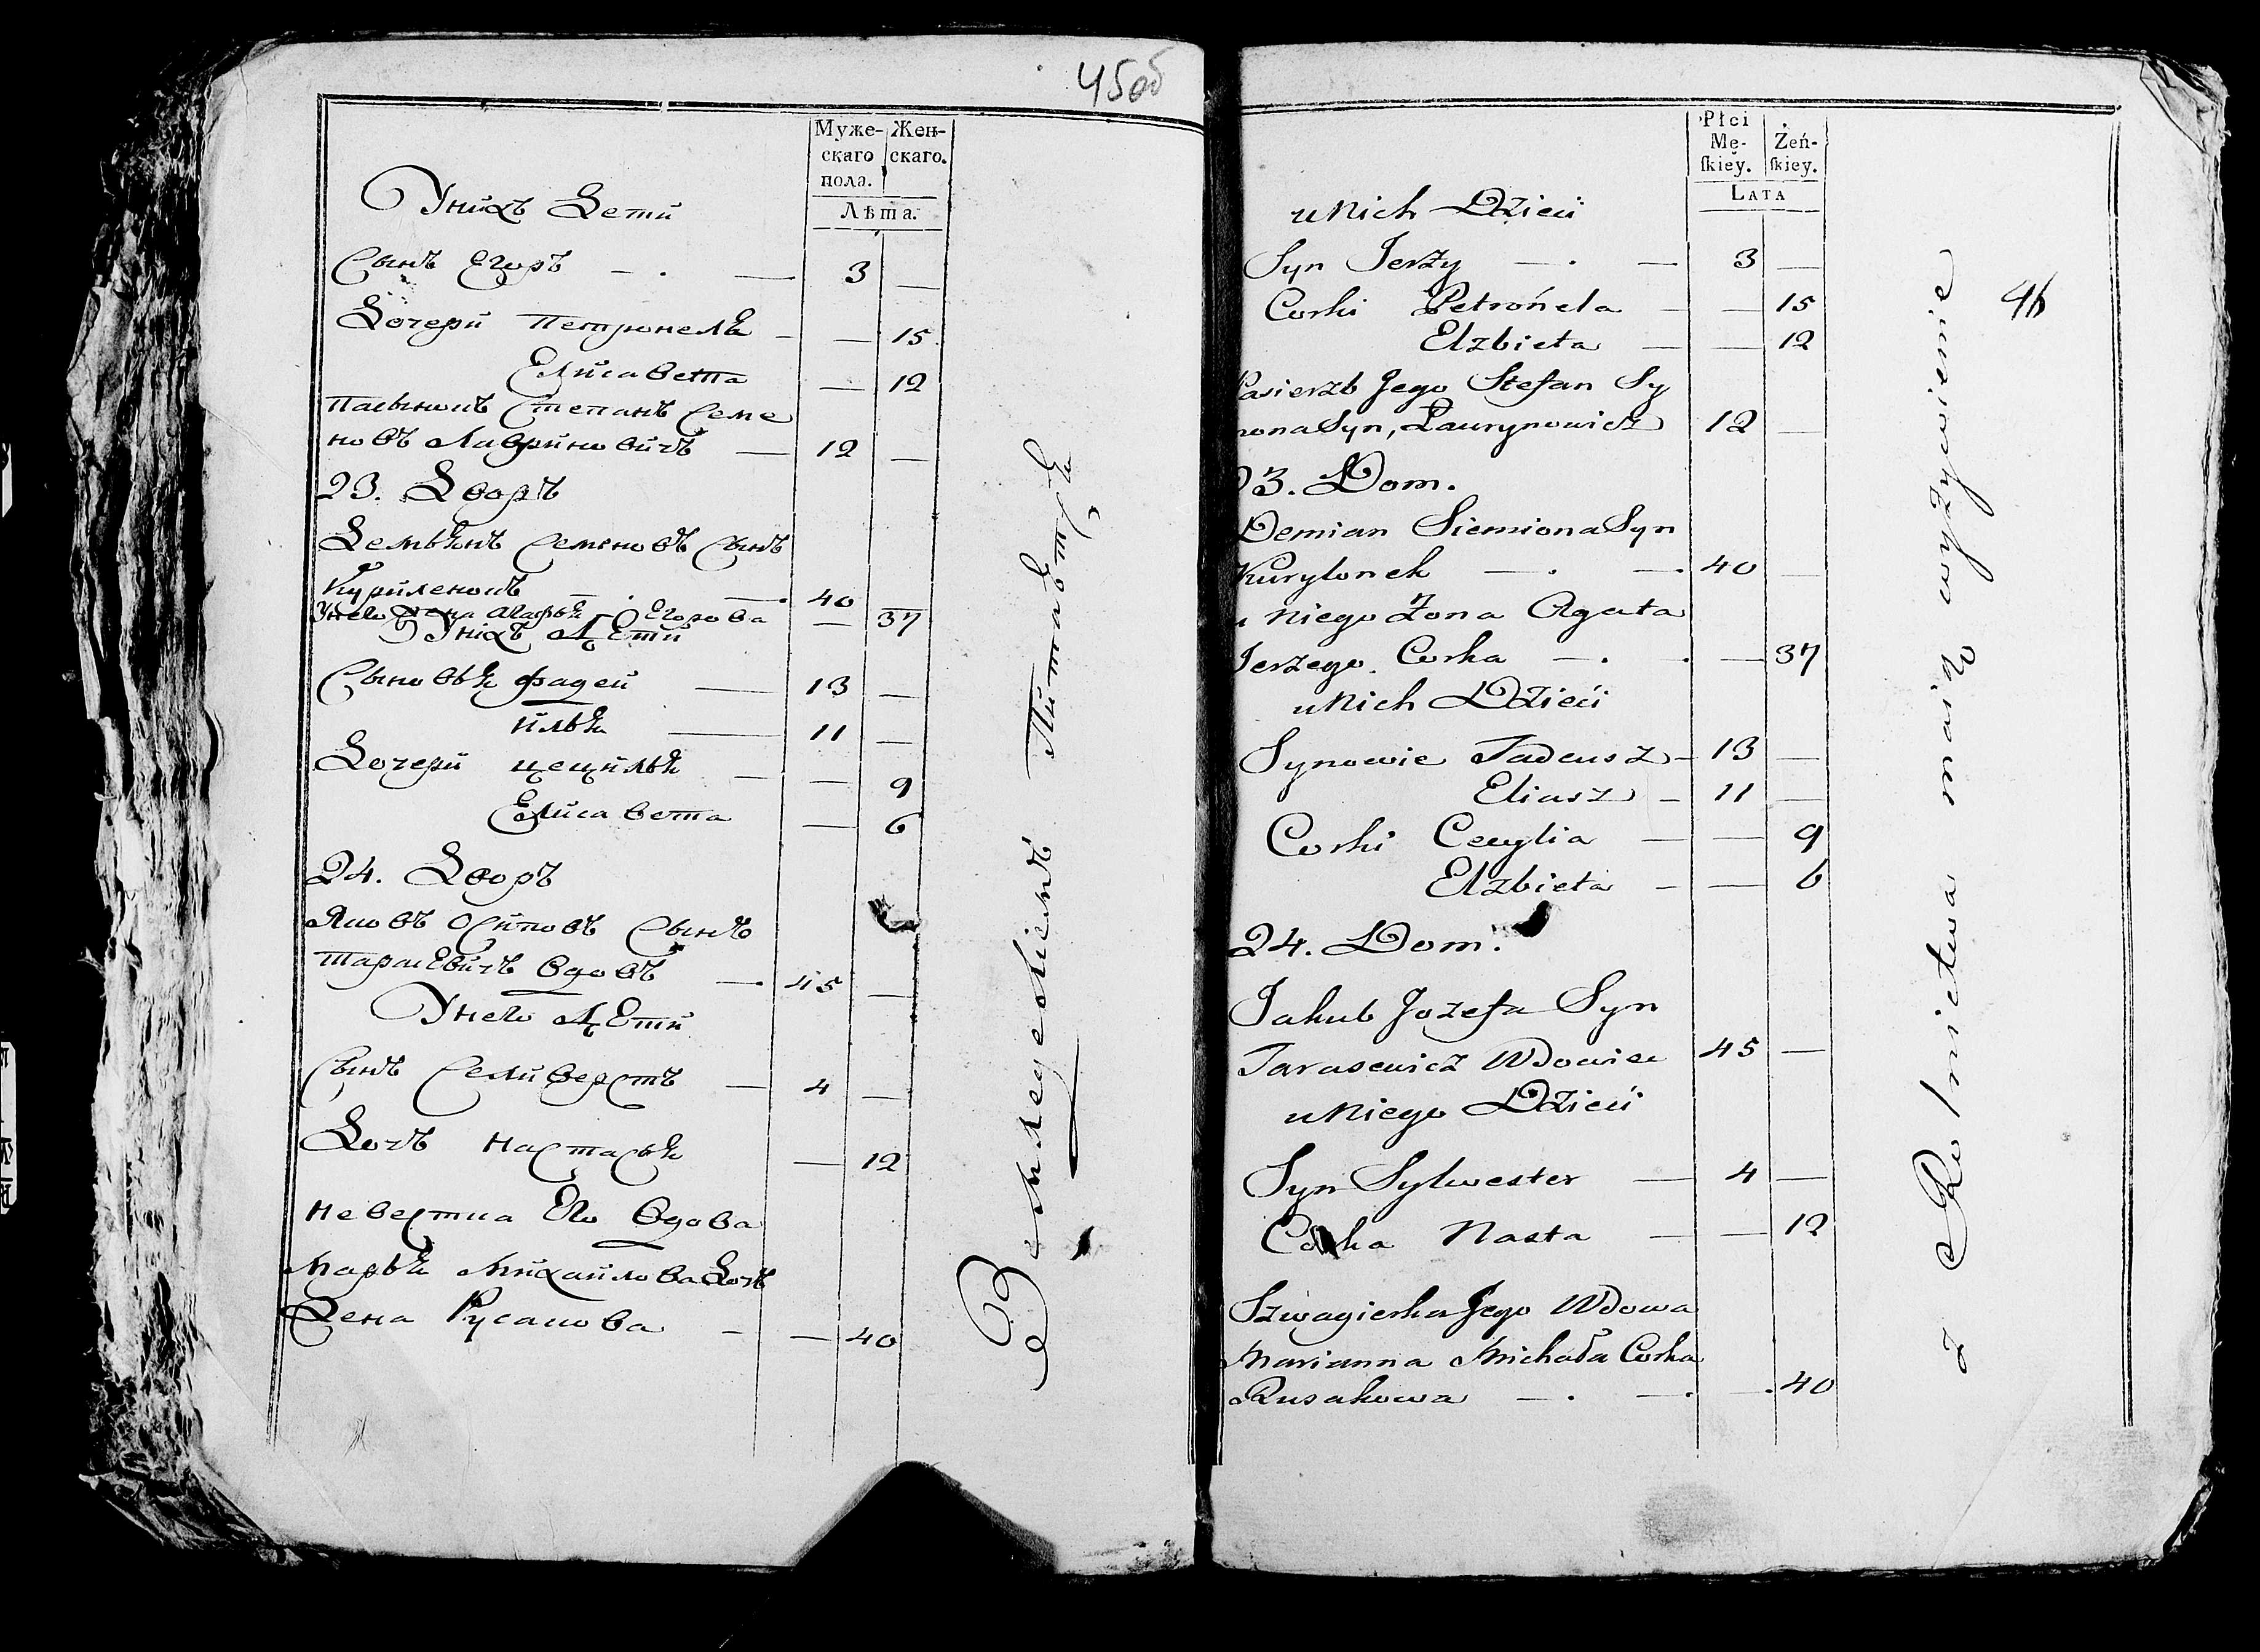 45об
Муже- Жен-
скаго скаго.
пола.
Лѣта.
Унихъ Дети
Сынъ Егоръ — . — 3 —
Дочери Петронеля — — 15
Елисавета — 12
Пасынокъ Степанъ Семе
новъ Лавриновичъ — 12 —
23. Дворъ
Демьянъ Семеновъ Сынъ
Куриленокъ — . — 40 —
Унего Жена Агафья Егорова — 37
Унихъ Дети
Сыновья Фадей — 13 —
Илья — 11 —
Дочери Цецилья — — 9
Елисавета — 6
24. Дворъ
Яковъ Осиповъ Сынъ
Тарасевичъ Вдовъ — 45 —
Унего Дети
Сынъ Селиверстъ — 4 —
Дочь Настасья — 12
Невестка Его Вдова
Марья Михайлова Дочь
Русакова — — 40
Земледелiемъ Питаютца
Płci
Mę- Żeń-
ſkiey. ſkiey.
LATA
u Nich Dzieci
Syn Jerzy — . — 3 —
Corki Petronela — — 15
Elzbieta — — 12
Pasierzb Jego Stefan Sy
mona Syn, Laurynowicz 12 —
23. Dom.
Demian Siemiona Syn
Kurylonek — . — . 40 —
u Niego Żona Agata
Jerzego Corka — . . — 37
u Nich Dzieci
Synowie Tadeusz — 13 —
Eliasz — 11 —
Corki Cecylia — — 9
Elzbieta — — 6
24. Dom.
Jakub Jozefa Syn
Tarasewicz Wdowiec 45 —
u Niego Dzieci
Syn Sylwester — 4 —
Corka Nasta — — 12
Szwagierka Jego Wdowa
Marianna Michała Corka
Rusakowa — . — . — . 40
z Rolnictwa maią wyżywienie
46